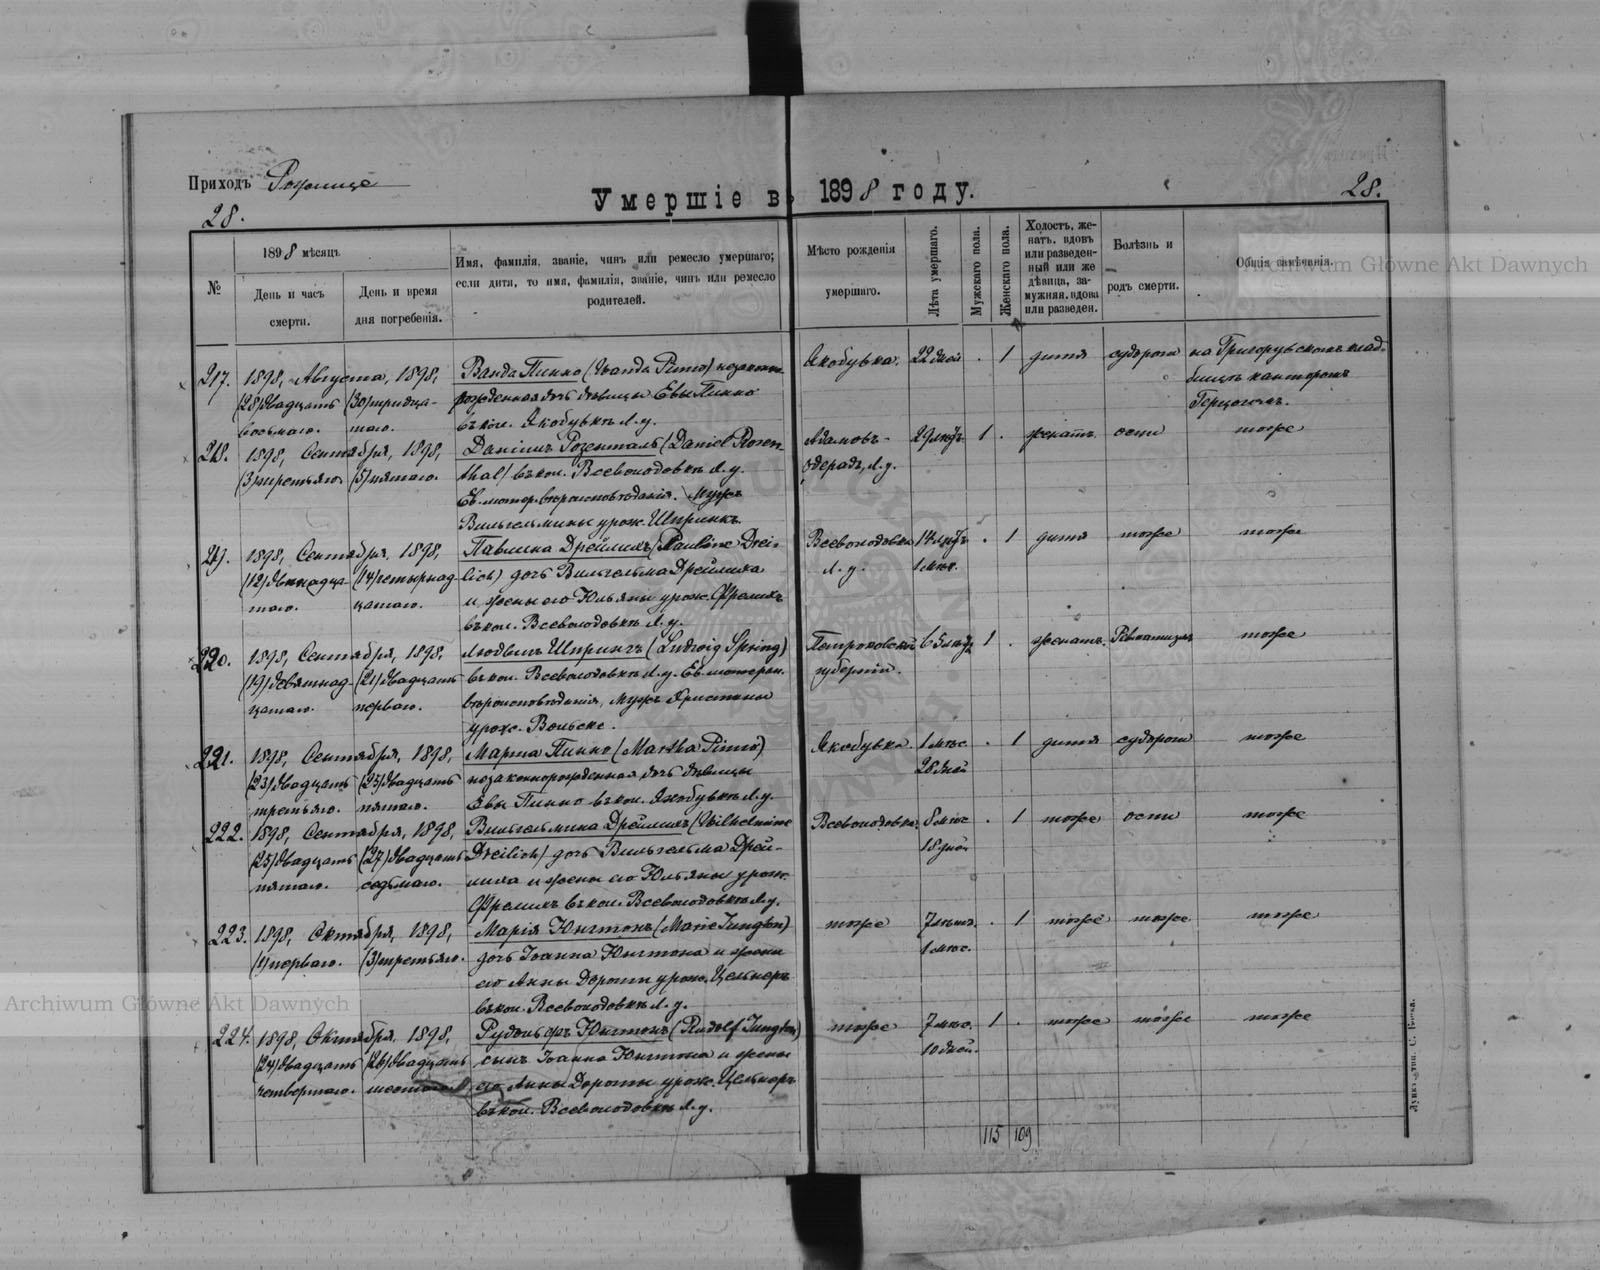 Приходъ Рожище
Умершіе въ 1898 году.
28.
28.
№
1898 мѣсяцъ
День и часъ смерти.
День и время дня погребенія.
Имя, фамилія, званіе, чинъ или ремесло умершаго;
если дитя, то имя, фамилія, званіе, чинъ или ремесло
родителей.
Мѣсто рожденія
умершаго.
Лѣта умершаго.
Мужскаго пола.
Женскаго пола.
Холостъ, же-
натъ, вдовъ
или разведен-
ный или же
дѣвица, за-
мужняя, вдова
или разведен.
Болѣзнь и
родъ смерти.
Общія замѣчанія.
Archiwum Główne Akt Dawnych
217. 1898, Августа, 1898, Ванда Пинно (Wanda Pinno) незаконно- Якобувка. 22 дней . 1 дитя судороги на Григорувскомъ клад-
(28) двадцать (30) тридца- рожденная дочь дѣвицы Евы Пинно бищѣ канторомъ
восьмаго. таго. въ кол. Якобувкѣ Л. у. Герцогомъ.
218. 1898, Сентября, 1898, Даніилъ Розенталь (Daniel Rosen- Адамовъ- 29 лѣтъ 1 . женатъ оспи тоже
(3) третьяго (5) пятаго. thal) въ кол. Всеволодовкѣ Л. у. Л. у.
Ев. лютер. вѣроисповѣданія. Мужъ
Вильгельмины урож. Шпринкъ.
219. 1898, Сентября, 1898, Павлина Дрейлихъ (Pauline Drei- Всеволодовка . 1 дитя тоже тоже
(12) двѣнадца- (14) четырнад- lich) дочь Вильгельма Дрейлиха Л. у. 1 мѣс.
таго. цатаго. и жены его Юльяны урож. Фрелихъ
въ кол. Всеволодовкѣ Л. у.
220. 1898, Сентября, 1898, Людвигъ Шпрингъ (Ludwig Spring) Петроковской 65 лѣтъ 1 . женатъ. Ревматизмъ тоже
(19) девятнад- (21) двадцать въ кол. Всеволодовкѣ Л. у. Ев. лютеран. губерніи.
цатаго. перваго. вѣроисповѣданія, Мужъ Христины
урож. Вольске.
221. 1898, Сентября, 1898, Марта Пинно (Martha Pinno) Якобувка. 1 мѣс. . 1 дитя судороги тоже
(23) двадцать (25) двадцать незаконнорожденная дочь дѣвицы 28 дней
третьяго. пятаго. Евы Пинно въ кол. Якобувкѣ Л. у.
222. 1898, Сентября, 1898, Вильгельмина Дрейлихъ (Wilhelmine Всеволодовка. 8 мѣс. . 1 тоже оспи тоже
(25) двадцать (27) двадцать Dreilich) дочь Вильгельма Дрей- 18 дней
пятаго. седьмаго. лиха и жены его Юльяны урож.
Фрелихъ въ кол. Всеволодовкѣ Л. у.
223. 1898, Октября, 1898, Марія Юнгтонъ (Marie Jungton) тоже 7 лѣтъ. . 1 тоже тоже тоже
(1) перваго. (3) третьяго. дочь Іоанна Юнгтона и жены 1 мѣс.
его Анны Дороты урож. Цельмеръ
въ кол. Всеволодовкѣ Л. у.
224. 1898, Октября, 1898, Рудольфъ Юнгтонъ (Rudolf Jungton) тоже 7 мѣс. 1 . тоже тоже тоже
(24) двадцать (26) двадцать сынъ Іоанна Юнгтона и жены 10 дней.
четвертаго. шестаго его Анны Дороты урож. Цельмеръ
въ кол. Всеволодовкѣ Л. у.
115 109
Archiwum Główne Akt Dawnych